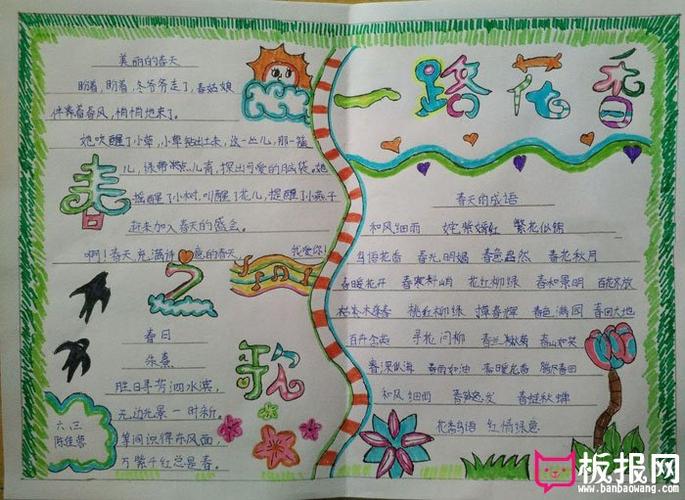 美丽的春天
盼着,盼着,冬爷爷走了,春姑娘
着春风,悄悄地来了。
她吹醒了小草,小草钻出土来,这一丛儿,那一簇
儿,绿带点儿黄,探出可爱的脑袋。她
摇醒了小树,叫醒了花儿,提醒了小燕子
赶来加入春天的盛会。
啊!春天,充满诗意的春天 我爱你!
春
之
歌
春日
朱熹
胜日寻芳泗水滨,
无边光景一时新。
等闲识得东风面,
万紫千红总是春。
六、三
陈佳
一路花香
春天的成语
和风细雨 姹紫嫣红 繁花似锦
鸟语花香 春光明媚 春意盎然 春花秋月
春暖花开 春寒料峭 花红柳绿 春和景明 百花齐放
枯木逢春 桃红柳绿 春晖 春色满园 春回大地
百卉 寻花问柳 春兰秋菊 春山如笑
春深似海 春雨如油 春暖花香
和风细雨 春蛙秋蝉
花香鸟语 红情绿意
板报网
www.banbaowang.com